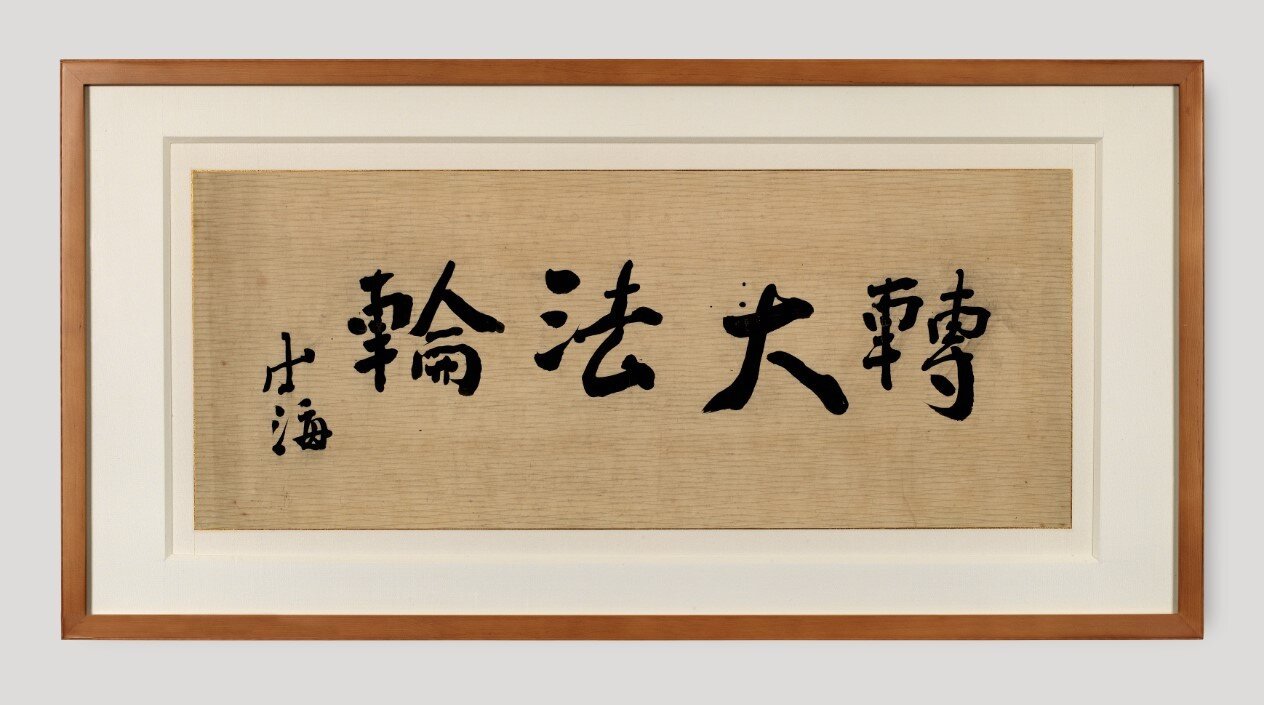 轉大法輪
海